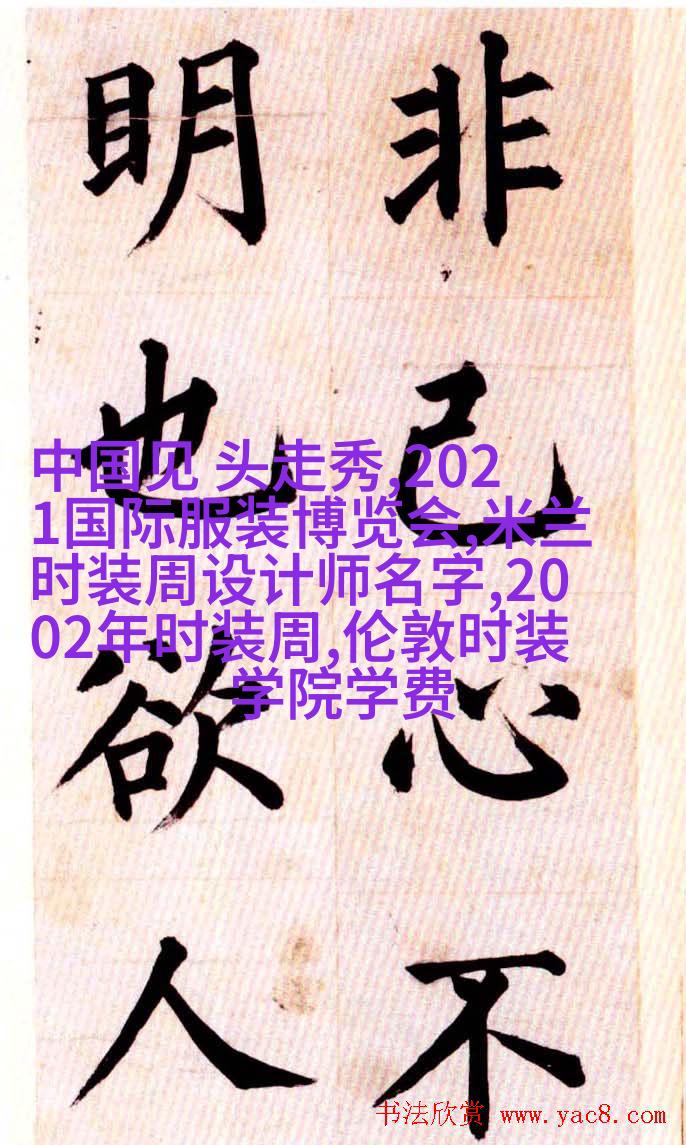 非己心不
明也欲人
中国见 头走秀,202
1国际服装博览会,米兰
时装周设计师名字,20
02年时装周,伦敦时装
学院学费
书法欣赏 www.yac8.com